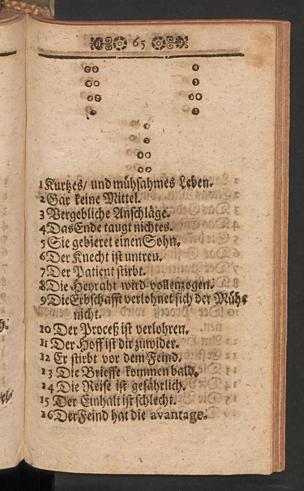 65
1 Kurtzes/ und mühsahmes Leben.
2 Gar keine Mittel.
3 Vergebliche Anschläge.
4 Das Ende taugt nichtes.
5 Sie gebieret einen Sohn.
6 Der Knecht ist untreu.
7 Der Patient stirbt.
8 Die Heyraht wird vollenzogen.
9 Die Erbschafft verlohnet sich der Mühe
nicht.
10 Der Proceß ist verlohren.
11 Der Hoff ist dir zuwider.
12 Er stirbt vor dem Feind.
13 Die Brieffe kommen bald.
14 Die Reise ist gefährlich.
15 Der Einhalt ist schlecht.
16 Der Feind hat die avantage.